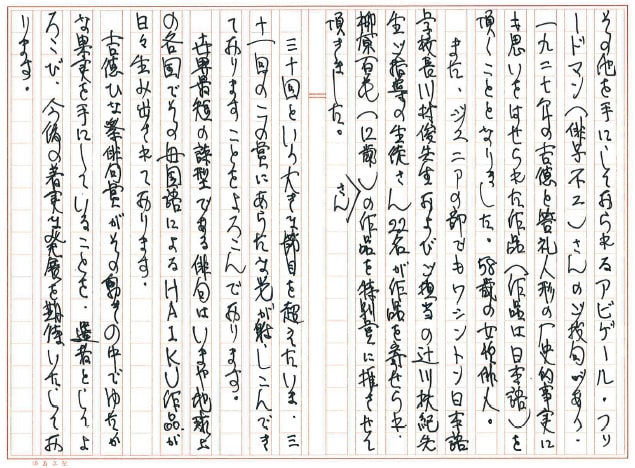 その他を手にしておられるアビゲール・フリ
ードマン(俳号不二)さんのご投句があり、
一九二七年の吉徳と答礼人形の史的事実に
も思いをはせられた作品(作品は日本語)を
頂くこととなりました。58歳の女性俳人。
また、ジュニアの部でもワシントン日本語
学校長川村俊先生およびご担当の辻川扶紀先
生ご指導の生徒さん22名が作品を寄せられ、
柳原百花(12歳)さんの作品を特別賞に推させて
頂きました。
三十回という大きな節目を超えたいま、三
十一回のこの賞にあらたな光が射しこんでき
ておりますことをよろこんでおります。
世界最短の詩型である俳句はいまや地球上
の各国でその母国語によるHAIKU作品が
日々生み出されております。
吉徳ひな祭俳句賞がその動きの中でゆたか
な果実を手にしていることを、選者としてよ
ろこび、今後の着実な発展を期待いたしてお
ります。